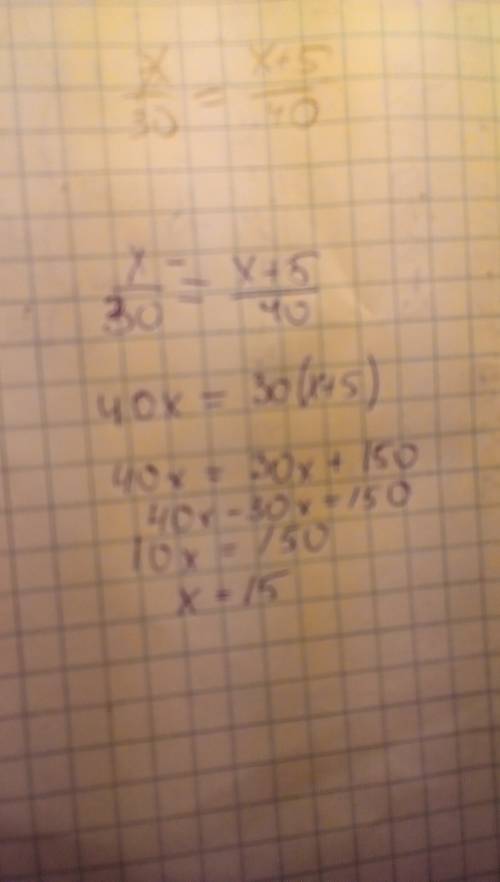 x/30 = x+5/40
x/30 = x+5/40
40x = 30(x+5)
40x = 30x + 150
40x - 30x = 150
10x = 150
x = 15